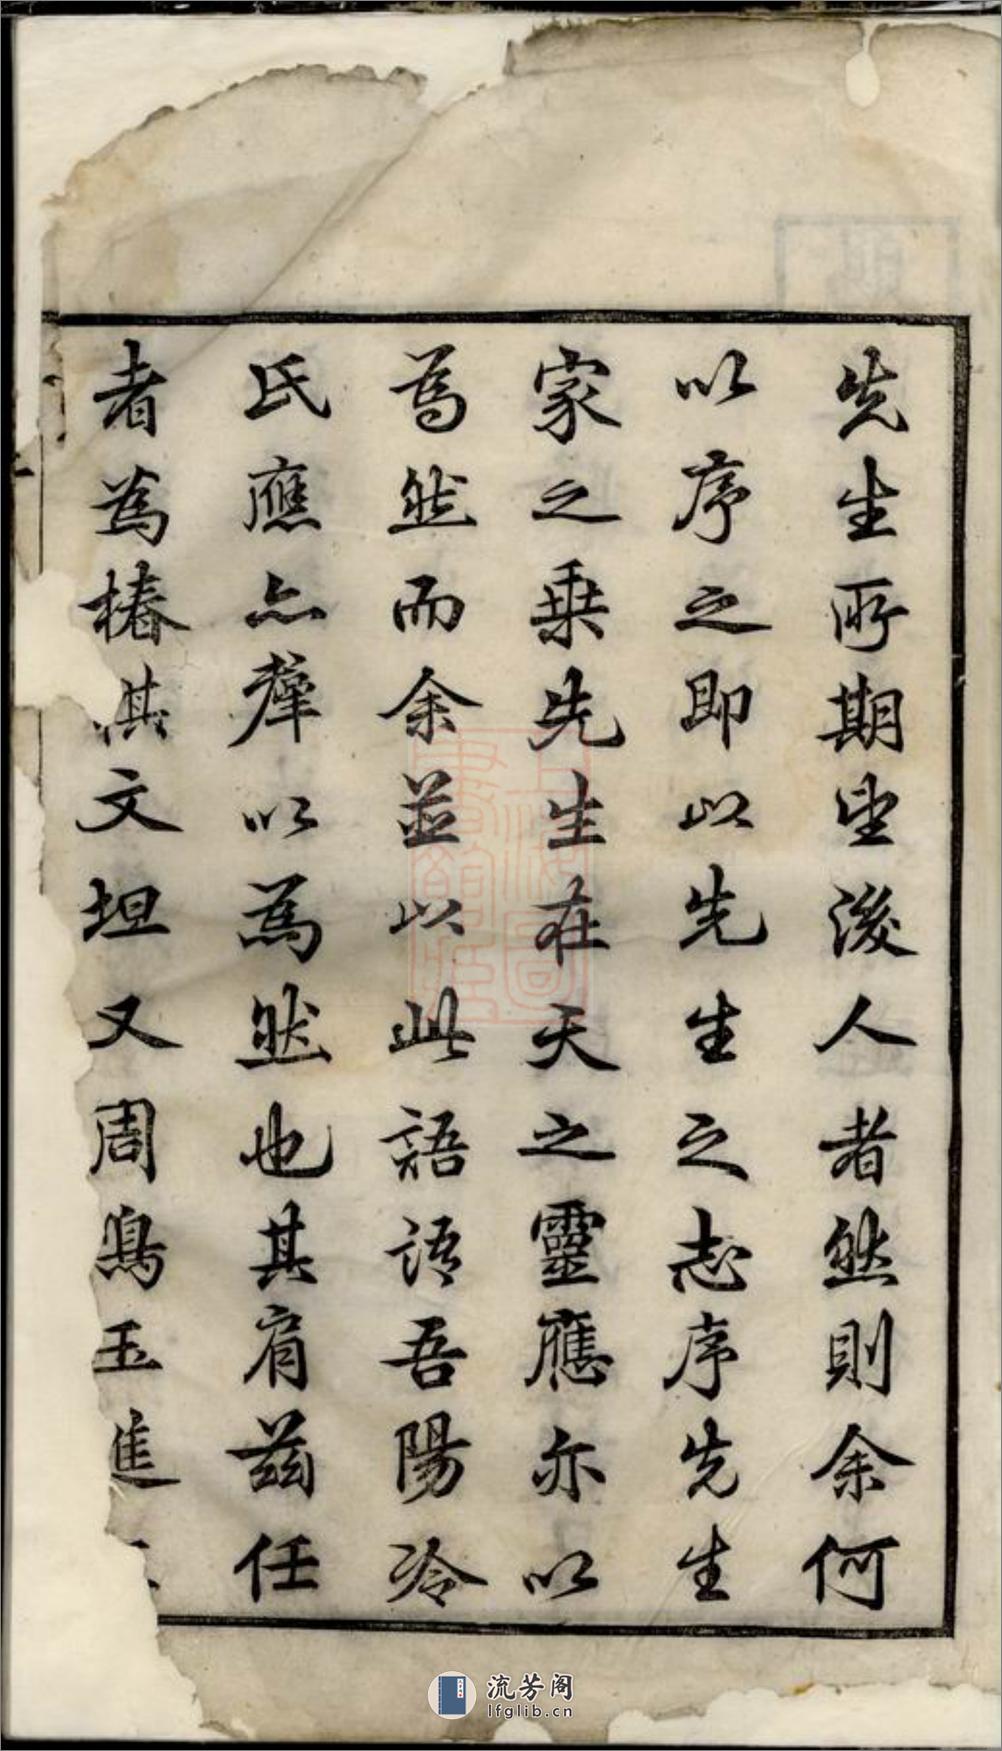 先生所期望後人者然則余何
以序之即以先生之志序先生
家之乗先生在天之靈應亦以
為然而余並以此語語吾陽冷
氏應亦羣以為然也其肩茲任
者為椿其文坦又周鳥玉進
上海圖書館藏
流芳阁
lfglib.cn